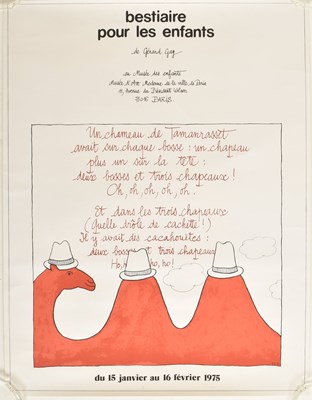 bestiaire
pour les enfants
de Gérard Gog
au Musée des enfants
Musée d'Art Moderne de la ville de Paris
11, avenue du Président Wilson
PARIS
Un chameau de Tamanrasset
avait sur chaque bosse : un chapeau
plus un sur la tête :
deux bosses et trois chapeaux !
Oh, oh, oh, oh, oh.
Et dans les trois chapeaux
(Quelle drôle de cachette !)
Il y avait des cacahouètes :
deux bosses et trois chapeaux
Ho, ho, ho!
du 15 janvier au 16 février 1975